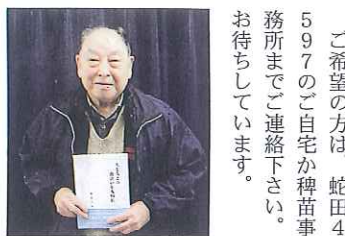 ご希望の方は、蛇田４
５９７のご自宅か稗苗事
務所までご連絡下さい。
お待ちしています。